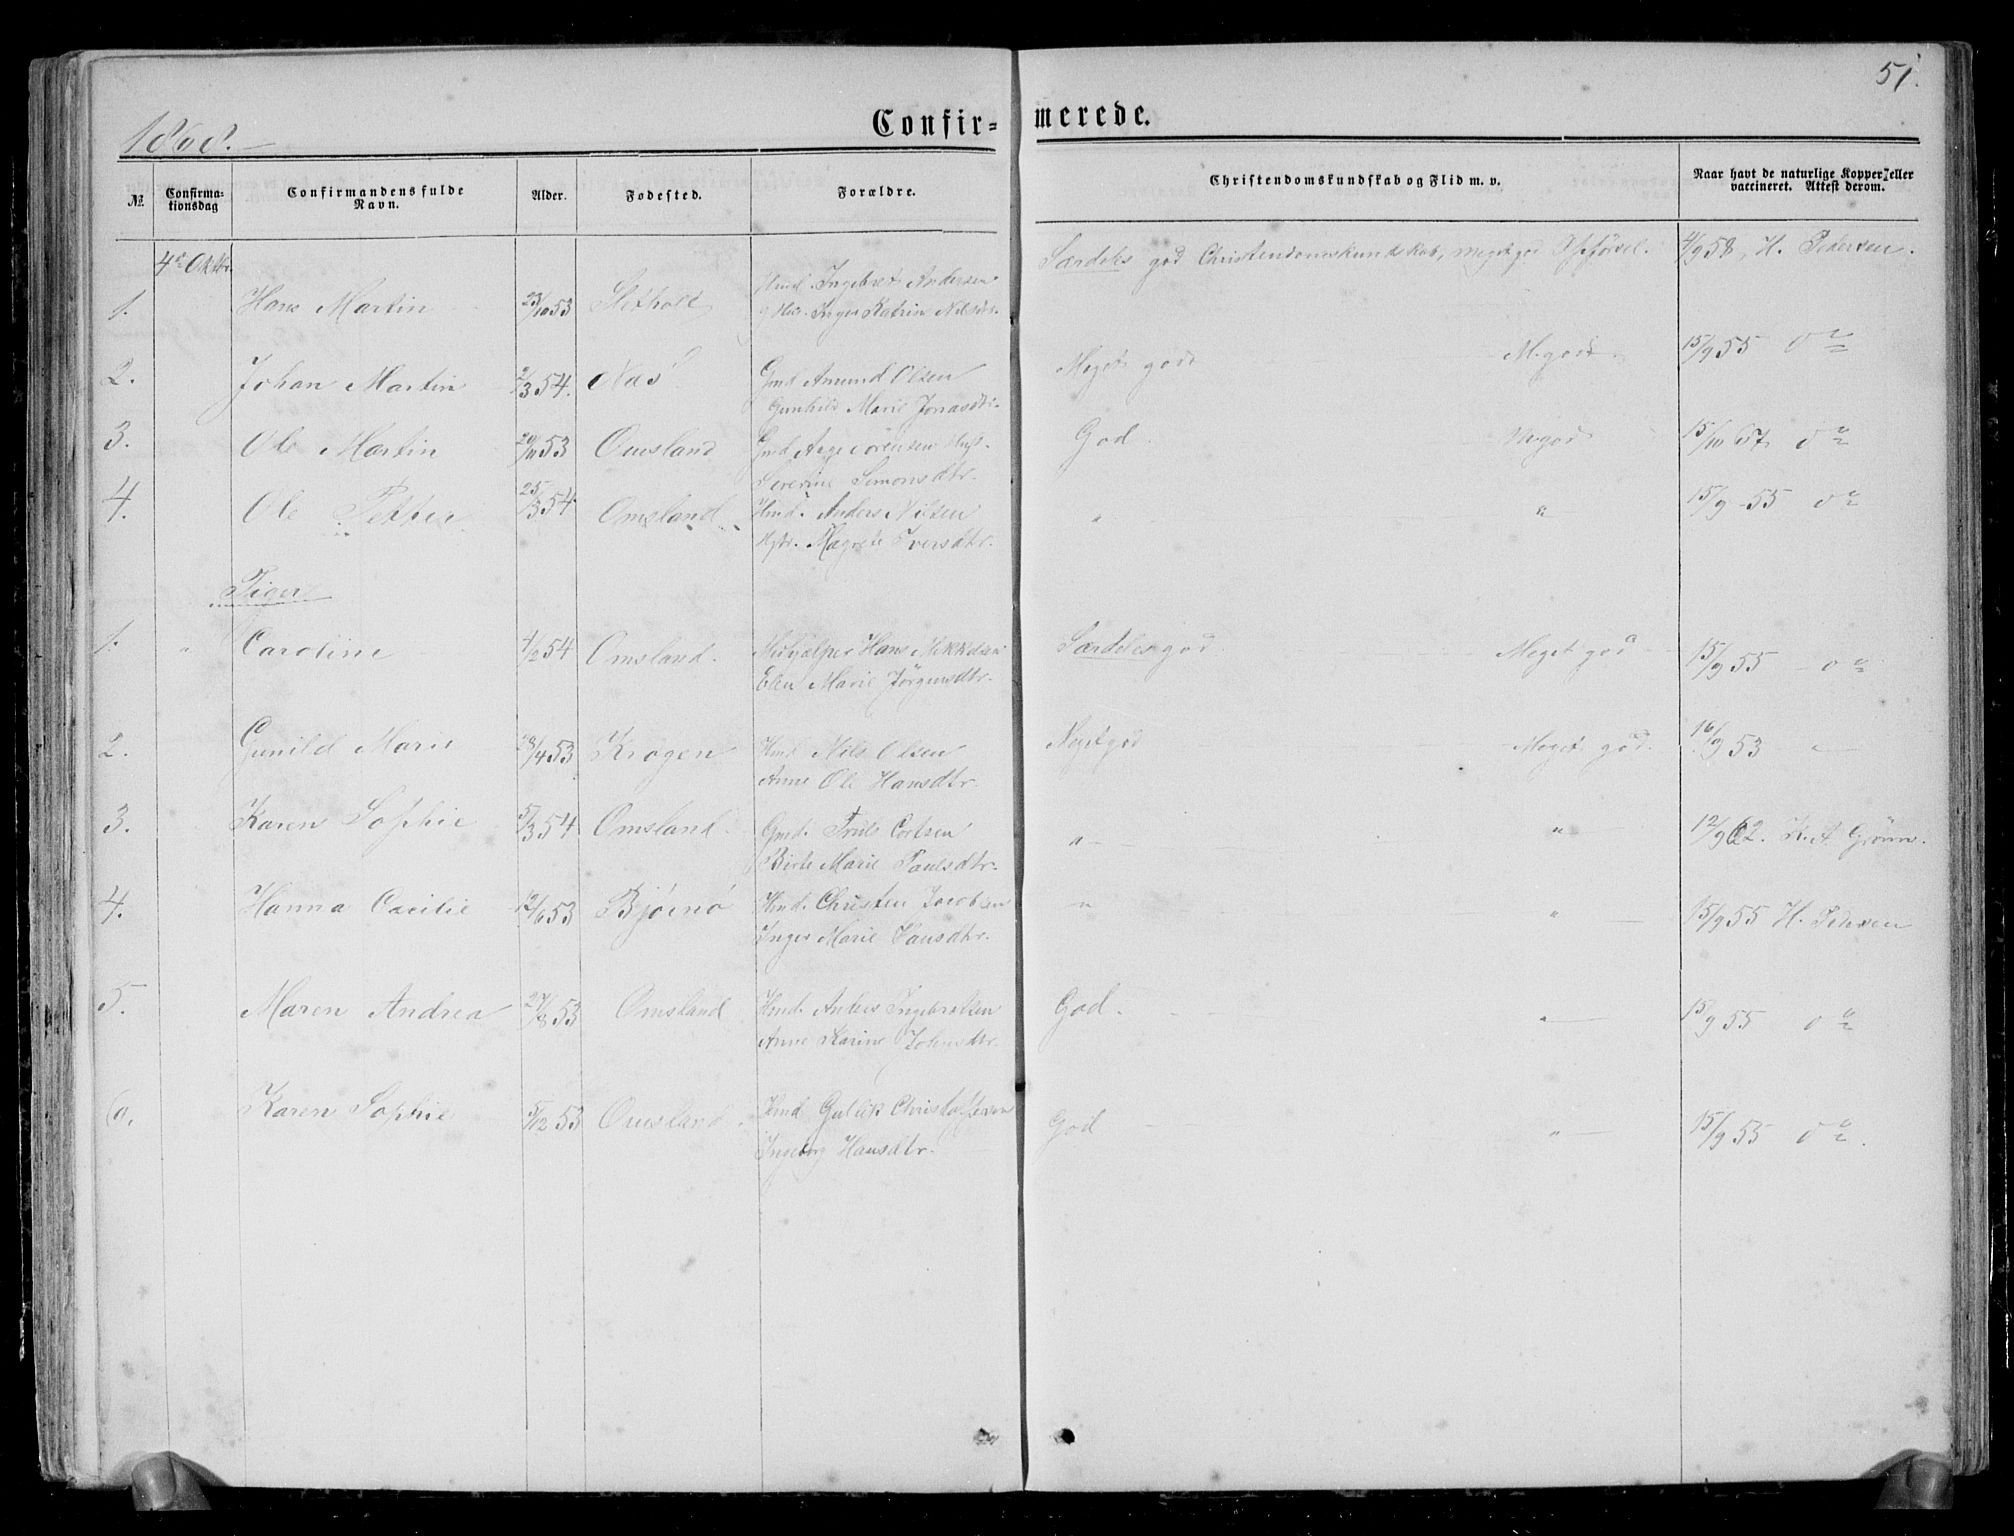 51.
1868.
Confir-
merede.
No.
Confirma-
tionsdag
Confirmandens fulde
Navn.
Alder.
Fodested.
Forældre.
Christendomskundskab og Flid m. v.
Naar havt de naturlige Kopper, eller
vaccineret. Attest derom.
4de Oktbr.
Særdeles god Christendomskundskab, meget god Opførsel. 4/9 58, H. Pedersen.
1. Hans Martin 23/10 53 Sletholt Hmd. Ingebret Andersen
Inger Katrin Nilsdtr.
2. Johan Martin 2/3 54. Nas Gmd Amund Olsen Meget god M. god. 15/9 55 do
Gunhild Marie Jonasdtr.
3. Ole Martin 20/11 53 Omsland Gmd Aage Sørensen God. M. god 15/10 67 do
Severine Simonsdtr.
4. Ole Petter 25/3 54 Omsland Hmd. Anders Nilsen " " 15/9 55 do
Magrete Iversdtr.
Piger
1. " Caroline 4/2 54 Omsland. Hans Mikkelsen Særdeles god Meget god 15/9 55 - do
Elen Marie Jørgensdtr.
2. Gunild Marie 28/4 53 Krogen Hmd Nils Olsen Meget god Meget god. 16/9 53
Anne Ole Hansdtr.
3. Karen Sophie 5/3 54 Omsland Gmd. Truls Cortsen " " 12/9 62. K. A Grønn.
Birte Marie Paulsdtr.
4. Hanna Cacilie 12/6 53 Bjørnø Hmd. Christen Jacobsen " " 15/9 55 H. Pedersen
Inger Marie Hansdtr.
5. Maren Andrea 27/8 53 Omsland Hmd. Anders Ingebretsen God. " 15/9 55 do
Anne Karine Johnsdtr.
6. Karen Sophie 5/12 53 Omsland. Hmd Gullik Christoffersen God " 15/9 55 do.
Ingeborg Hansdtr.